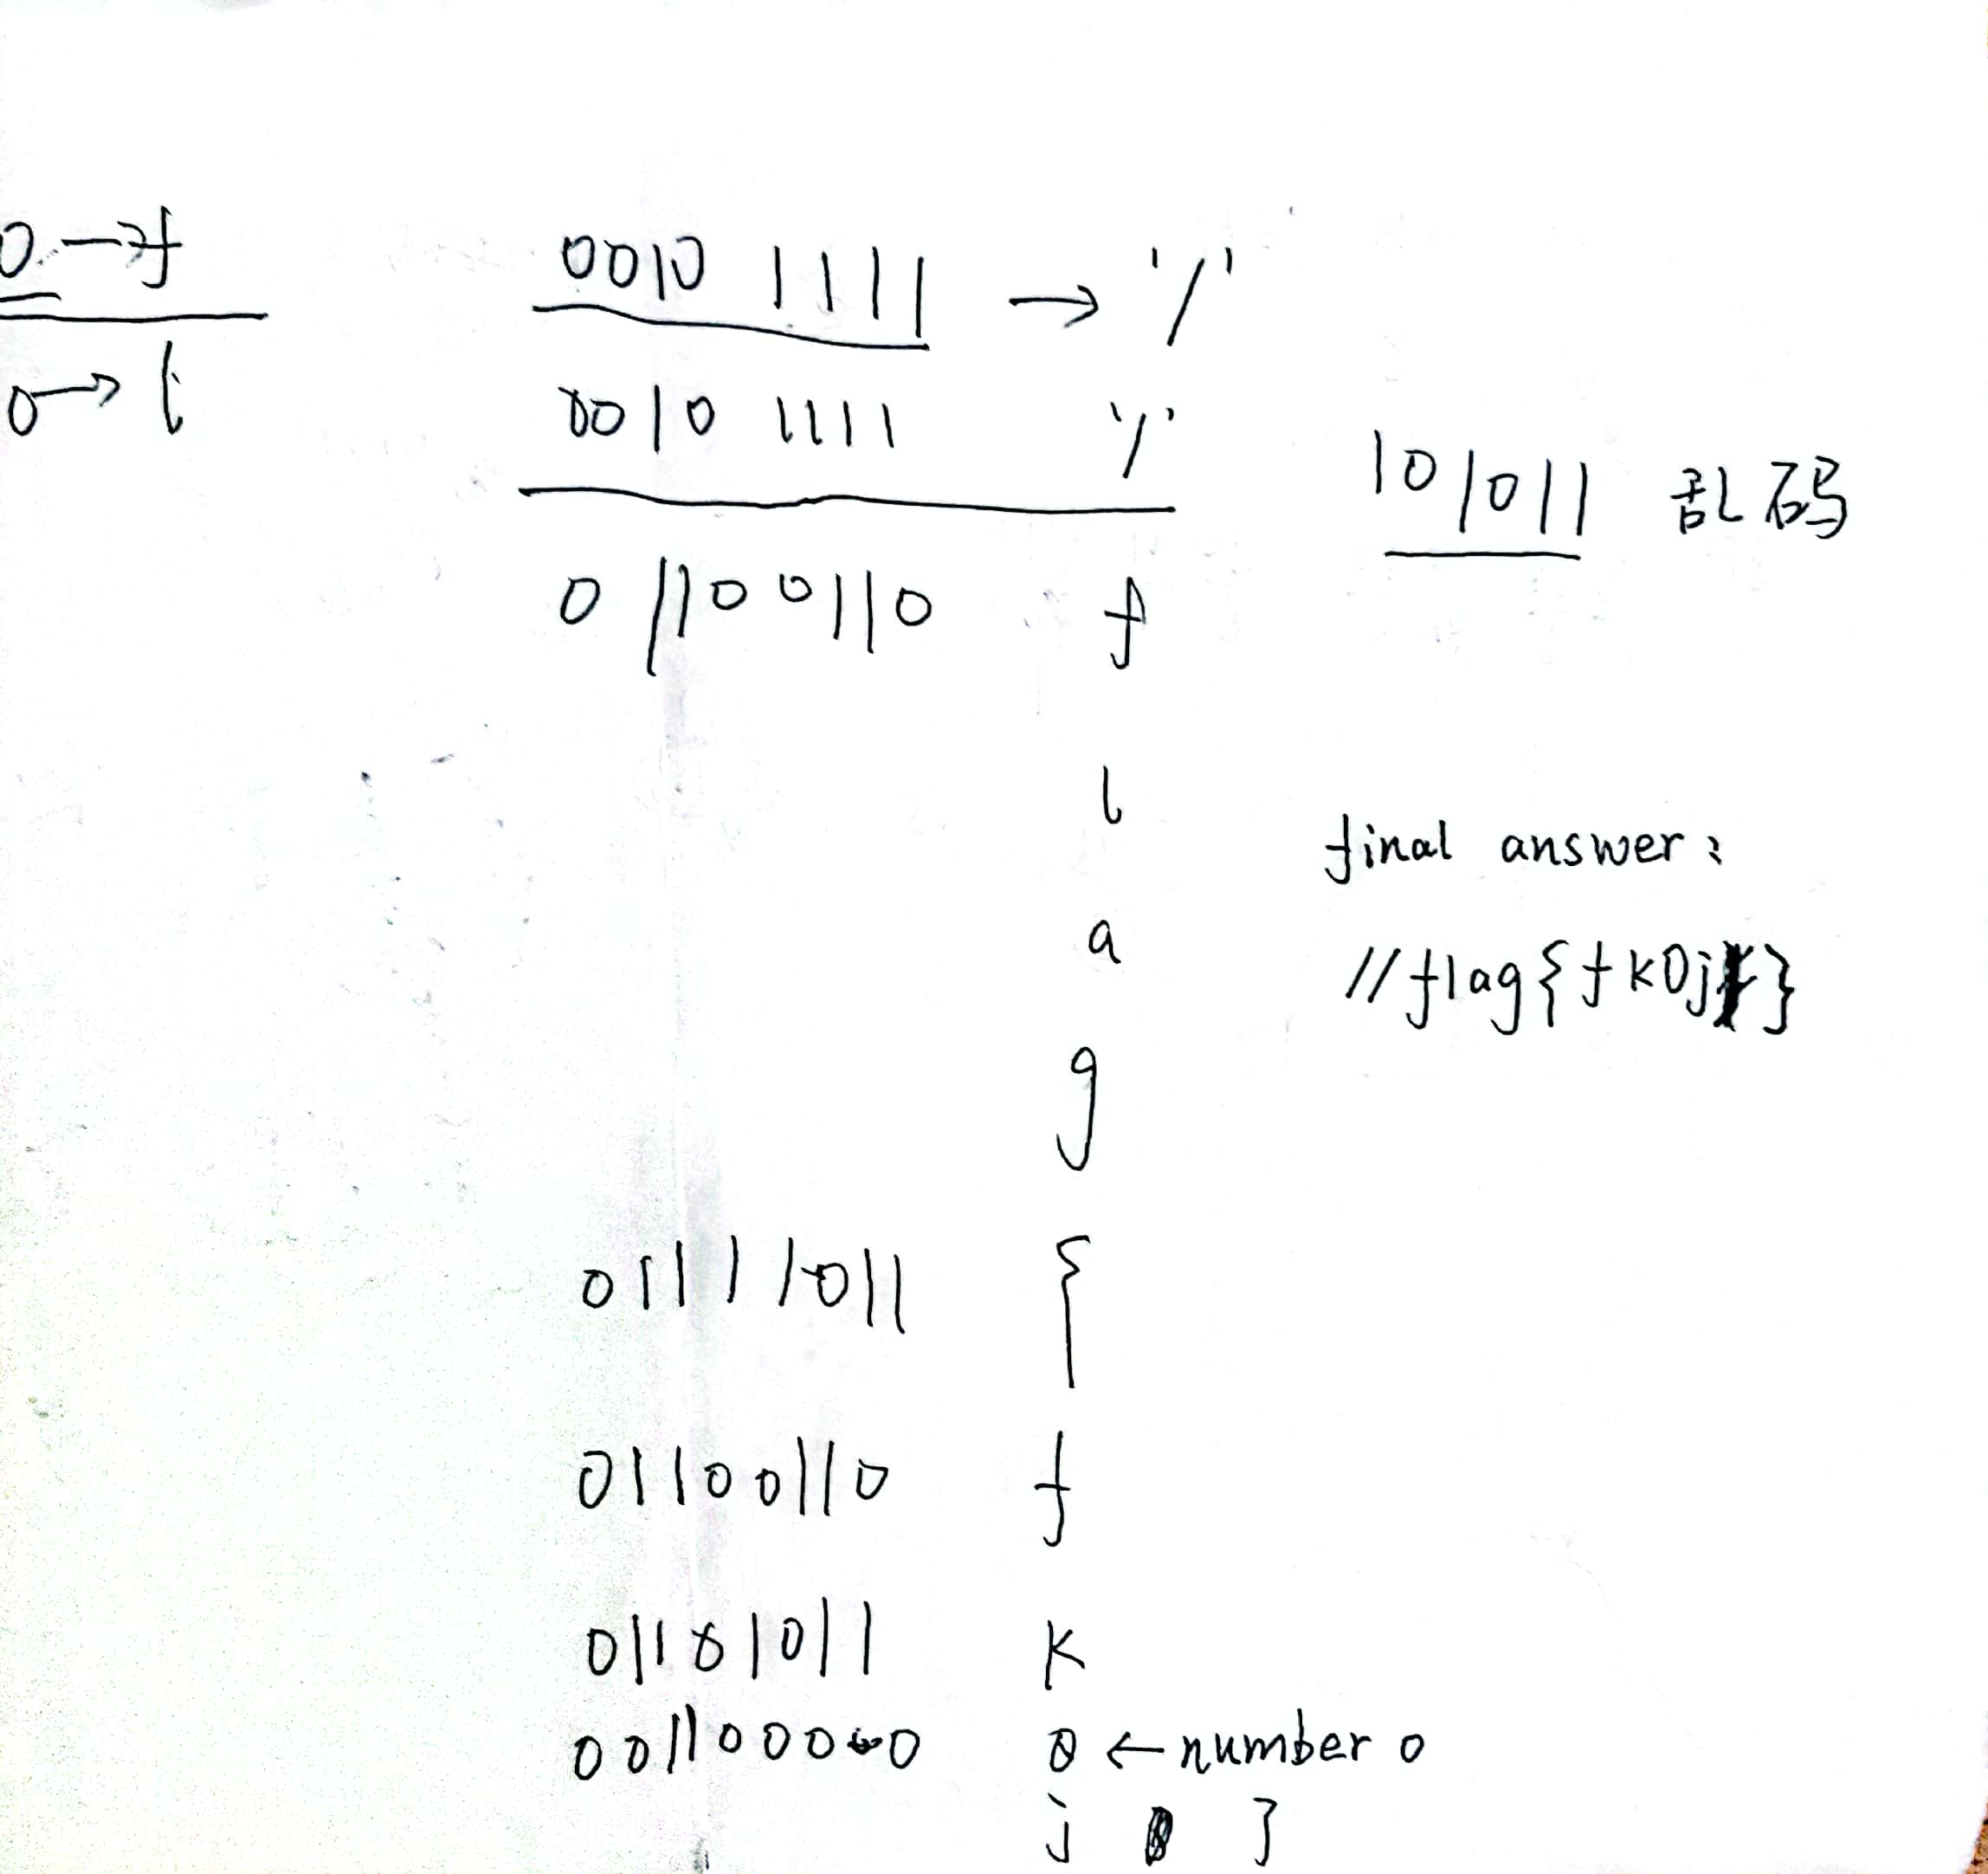 0 → f
0 → l
0010 1111 → '/'
0010 1111 '/'
101011 乱码
01100110 f
l
final answer:
a
//flag{fk0j}
g
01111011 {
01100110 f
01101011 k
00110000 0 ← number 0
j }